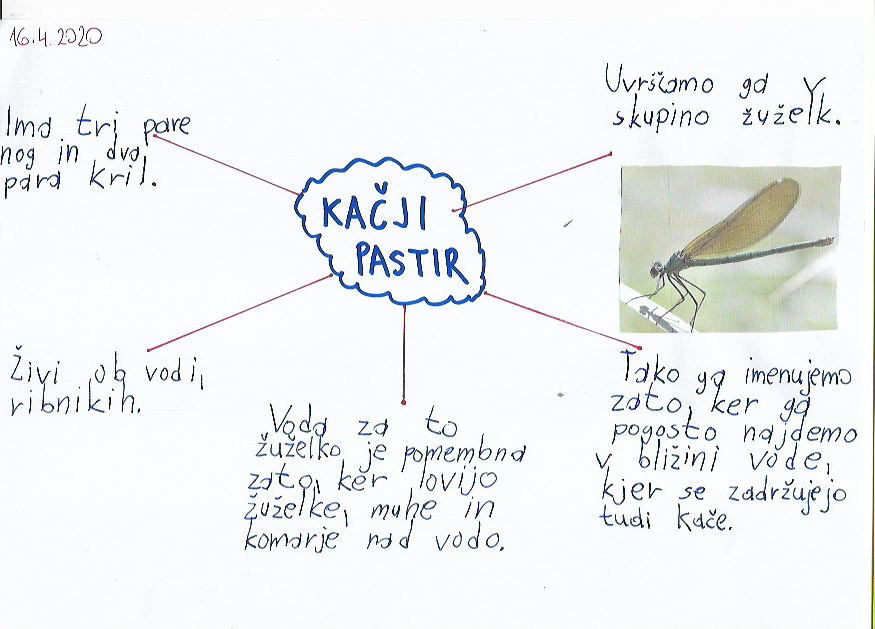 16.4.2020
Ima tri pare
nog in dva
para kril.
KAČJI
PASTIR
Uvrščamo ga v
skupino žuželk.
Živi ob vodi,
ribnikih.
Voda za to
žuželko je pomembna
zato, ker lovijo
žuželke, muhe in
komarje nad vodo.
Tako ga imenujemo
zato, ker ga
pogosto najdemo
v bližini vode,
kjer se zadržujejo
tudi kače.